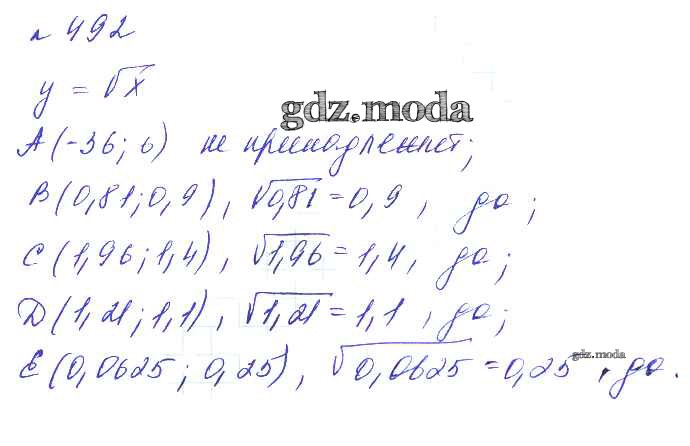 № 492
y = √x
gdz.moda
A(-36; 6) не принадлежит;
B(0,81; 0,9), √0,81 = 0,9, да;
C(1,96; 1,4), √1,96 = 1,4, да;
D(1,21; 1,1), √1,21 = 1,1, да;
E(0,0625; 0,25), √0,0625 = 0,25, да.
gdz.moda